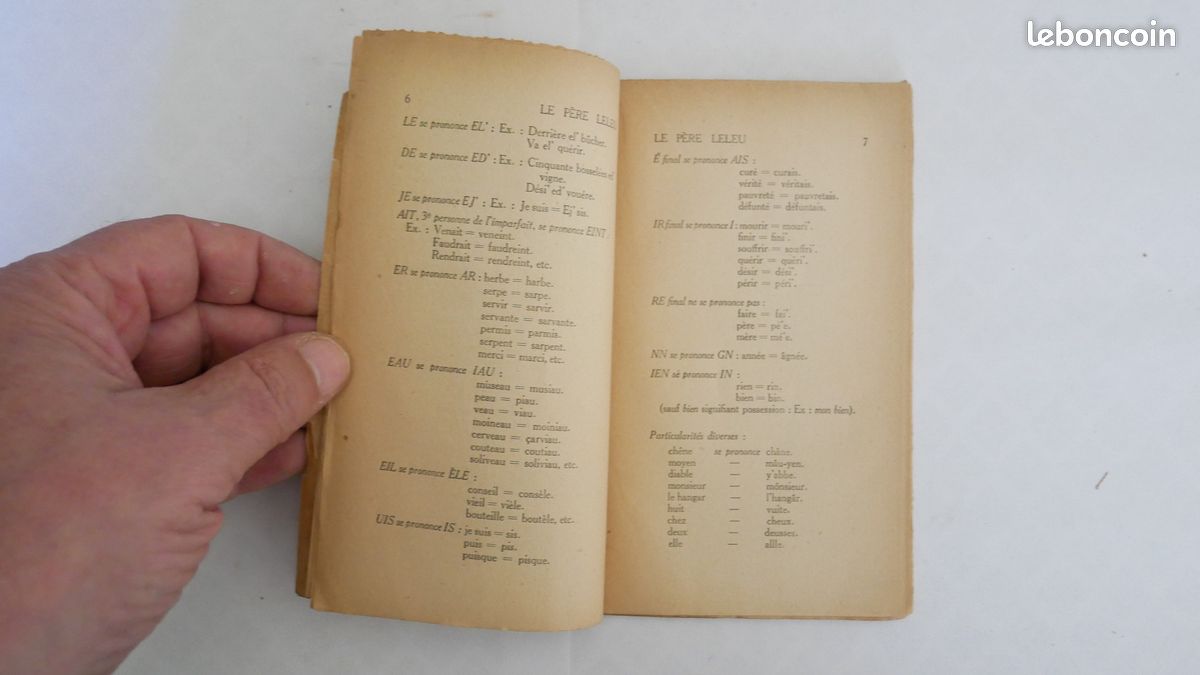 leboncoin
6
LE PÈRE LELEU
LE se prononce EL' : Ex. : Derrière el' bûcher.
Va el' quérir.
DE se prononce ED' : Ex. : Cinquante bosselées ed'
vigne.
Dési' ed' vouère.
JE se prononce EJ' : Ex. : Je suis = Ej' sis.
AIT, 3e personne de l'imparfait, se prononce EINT.
Ex. : Venait = veneint.
Faudrait = faudreint.
Rendrait = rendreint, etc.
ER se prononce AR : herbe = harbe.
serpe = sarpe.
servir = sarvir.
servante = sarvante.
permis = parmis.
serpent = sarpent.
merci = marci, etc.
EAU se prononce IAU :
museau = musiau.
peau = piau.
veau = viau.
moineau = moiniau.
cerveau = çarviau.
couteau = coutiau.
soliveau = soliviau, etc.
EIL se prononce ÈLE :
conseil = consèle.
vieil = vièle.
bouteille = boutèle, etc.
UIS se prononce IS : je suis = sis.
puis = pis.
puisque = pisque.
LE PÈRE LELEU
7
É final se prononce AIS :
curé = curais.
vérité = véritais.
pauvreté = pauvretais.
défunté = défuntais.
IR final se prononce I : mourir = mouri'.
finir = fini'.
souffrir = souffri'.
quérir = quéri'.
désir = dési'.
périr = péri'.
RE final ne se prononce pas :
faire = fai'.
père = pé'e.
mère = mé'e.
NN se prononce GN : année = agnée.
IEN se prononce IN :
rien = rin.
bien = bin.
(sauf bien signifiant possession : Ex : mon bien).
Particularités diverses :
chêne se prononce châne.
moyen — mâu-yen.
diable — y'abbe.
monsieur — mônsieur.
le hangar — l'hangâr.
huit — vuite.
chez — cheux.
deux — deusses.
elle — allle.